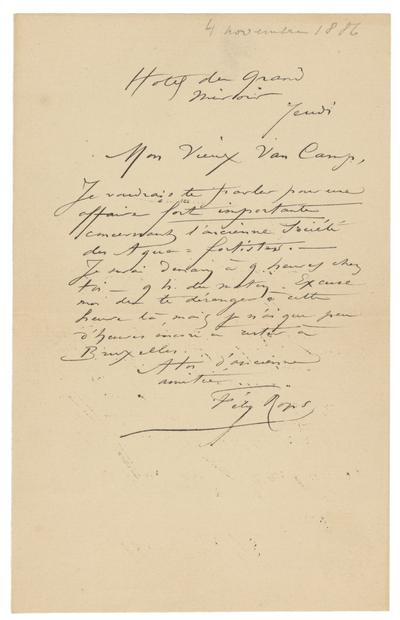 4 novembre 1886
Hotel du Grand
Miroir
Jeudi
Mon Vieux Van Camp,
Je voudrais te parler pour une
affaire fort importante
concernant l'ancienne Société
des Aqua-fortistes. —
Je serai demain à 9 heures chez
toi — 9 h. du matin. Excuse
moi de te déranger à cette
heure là mais je n'ai que peu
d'heures encore à rester à
Bruxelles.
A toi d'ancienne
amitié
Fély Rops